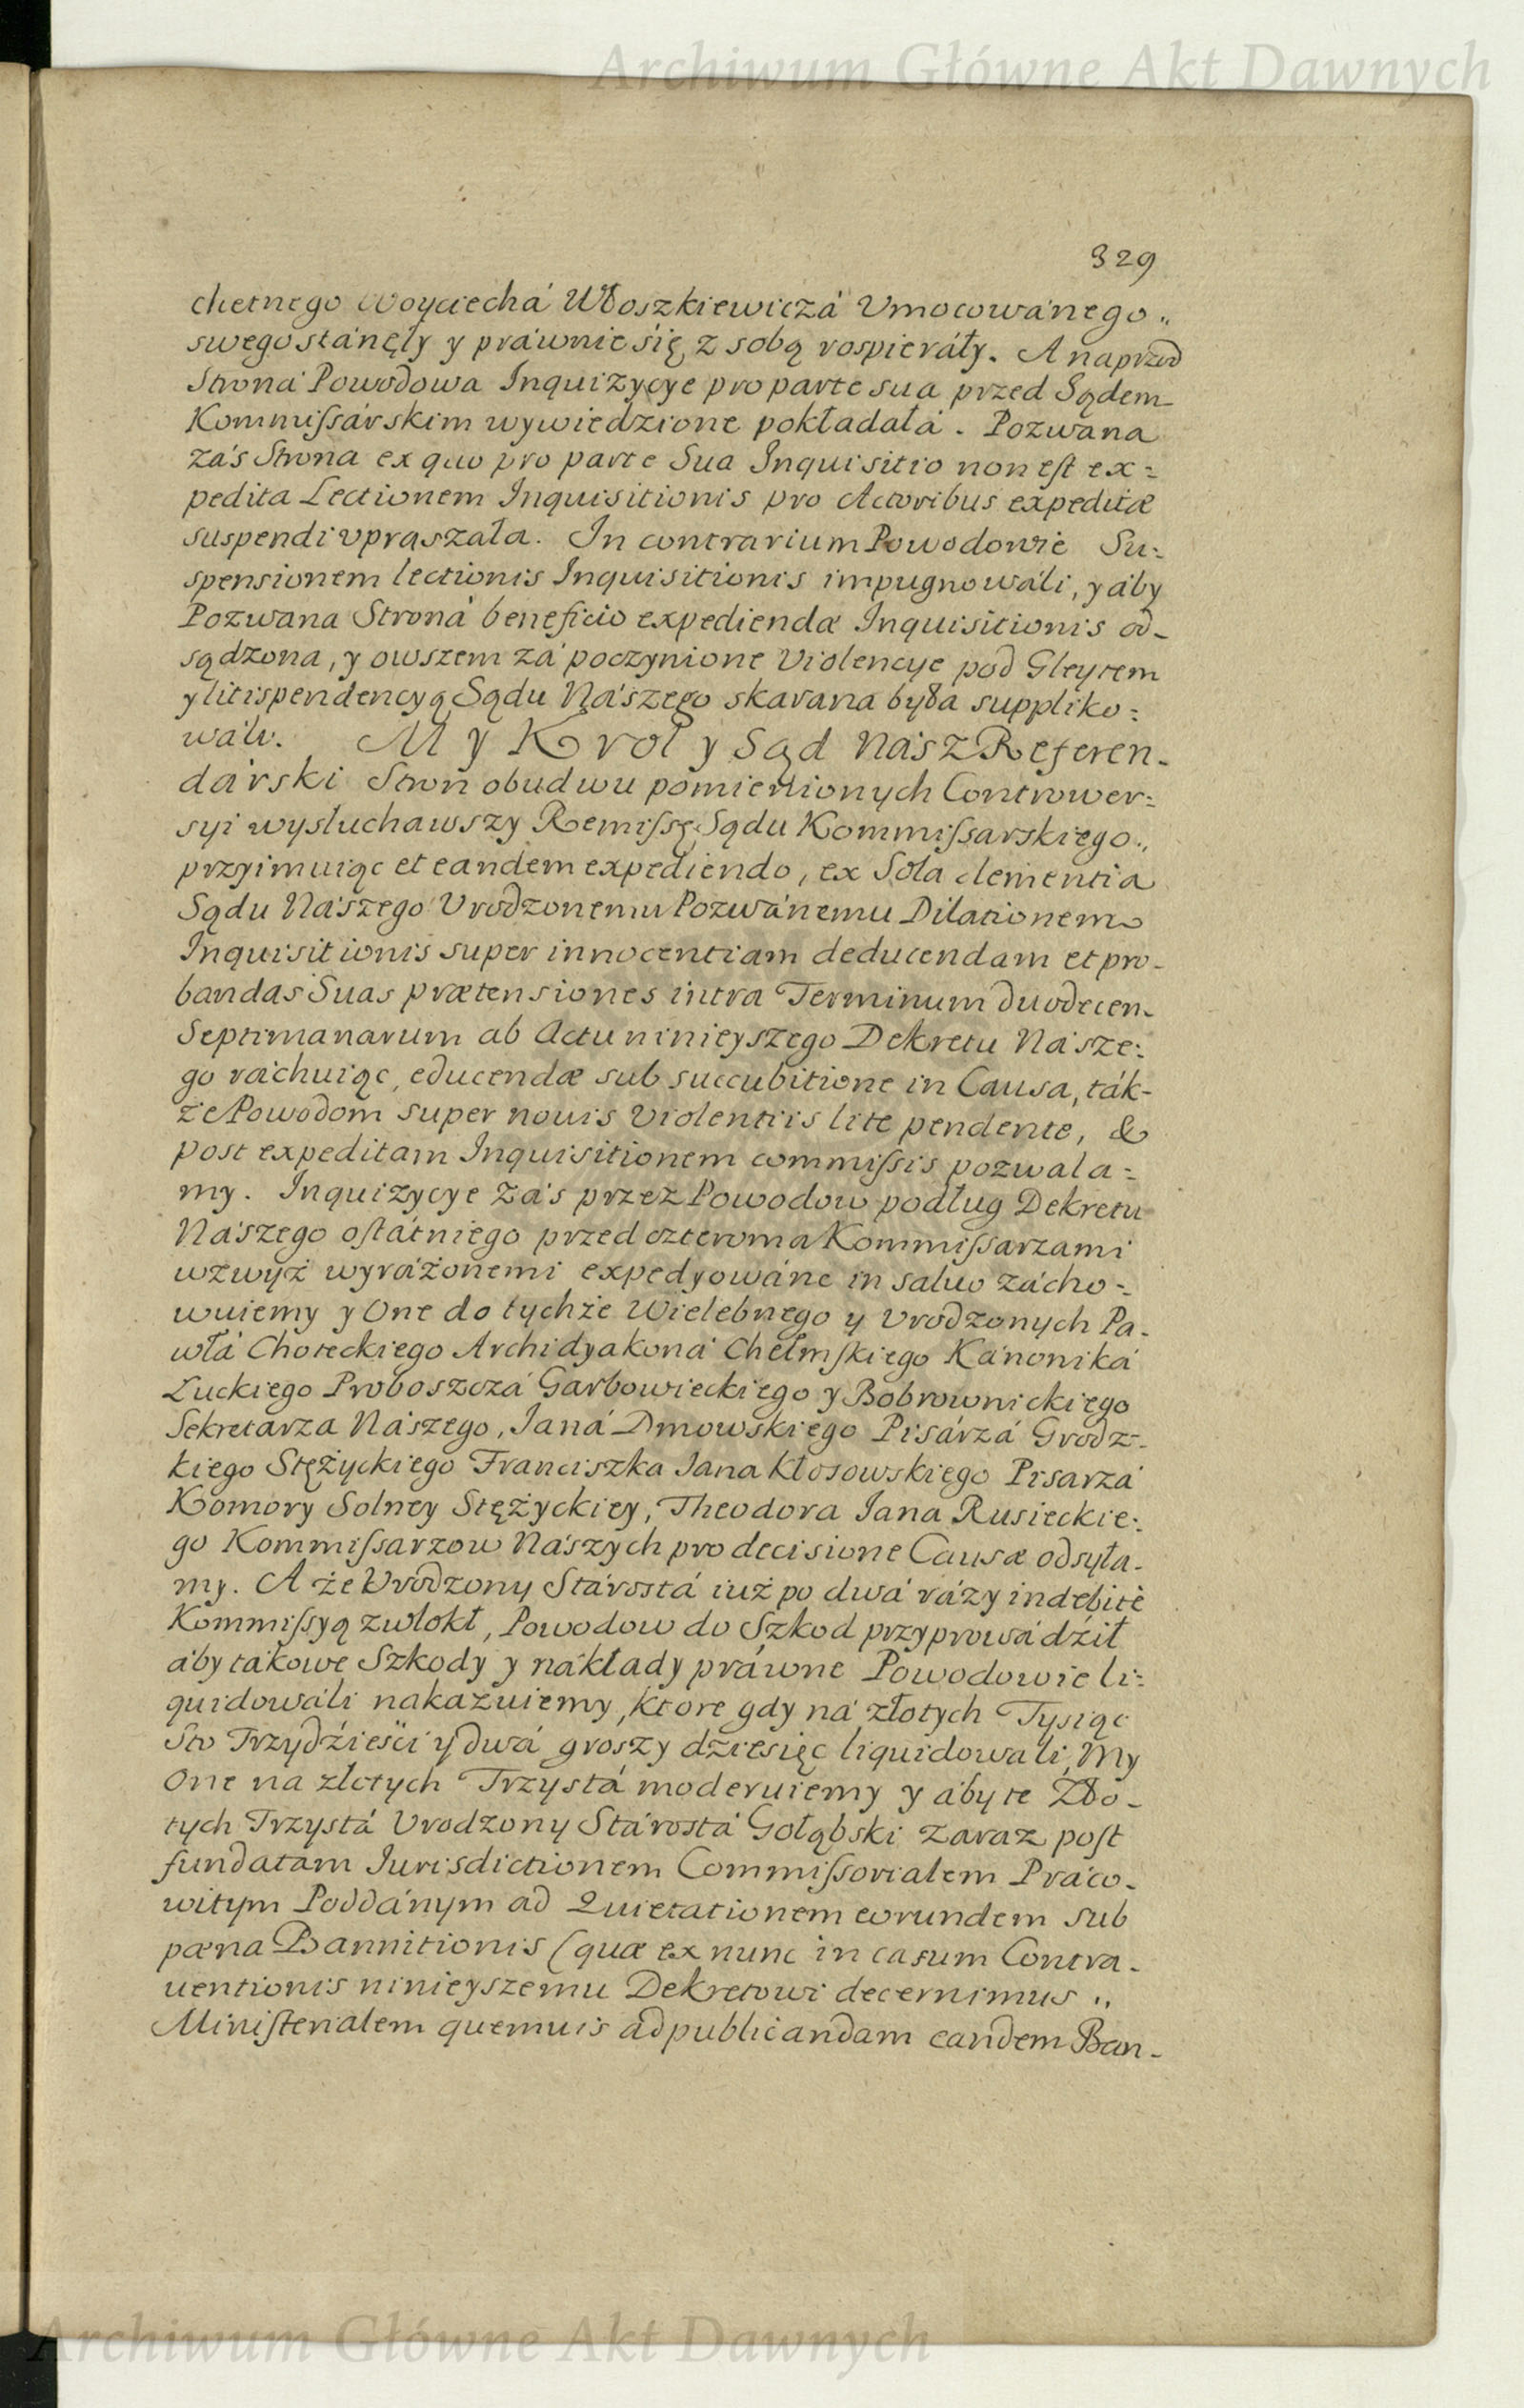 Archiwum Główne Akt Dawnych
329
chetnego Woyciechá Włoszkiewiczá Vmocowánego„
swego stánęły y práwnie się z sobą rospieráły. A naprzod
Strona Powodowa Inquizycye pro parte sua przed Sądem
Kommiſsárskim wywiedzione pokładałá. Pozwana
záś Strona ex quo pro parte Sua Inquisitio non eſt ex=
pedita Lectionem Inquisitionis pro Actoribus expeditæ
suspendi vpraszała. In contrarium Powodowie Su=
spensionem lectionis Inquisitionis impugnowáli, y áby
Pozwana Stroná beneficio expediendæ Inquisitionis od-
sądzona, y owszem zá poczynione Violencye pod Gleytem
y litispendencyą Sądu Nászego skarana była suppliko=
wáli. My Krol y Sąd nász Referen-
dárski Stron obudwu pomienionych Contrower=
syi wysłuchawszy Remiſsę Sądu Kommiſsarskiego„
przyimuiąc et eandem expediendo, ex Sola clementia
Sądu Nászego Vrodzonemu Pozwánemu Dilationem
Inquisitionis super innocentiam deducendam et pro-
bandas Suas prætensiones intra Terminum duodecem
Septimanarum ab Actu ninieyszego Dekretu Násze=
go ráchuiąc, educendæ sub succubitione in Causa, ták-
że Powodom super nouis Violentiis lite pendente, &
post expeditam Inquisitionem commiſsis pozwala=
my. Inquizycye záś przez Powodow podług Dekretu
Nászego oſtátniego przed czteroma Kommiſsarzami
wzwyż wyráżonemi expedyowáne in saluo zácho=
wuiemy y One do tychże Wielebnego y Vrodzonych Pa-
włá Choteckiego Archidyakoná Chełmſkiego Kánoniká
Łuckiego Proboszczá Garbowieckiego y Bobrownickiego
Sekretarza Nászego, Janá Dmowskiego Pisárzá Grodz-
kiego Stężyckiego Franciszka Jana Kłosowskiego Pisarzá
Komory Solney Stężyckiey, Theodora Jana Rusieckie=
go Kommiſsarzow Nászych pro decisione Causæ odsyła-
my. A że Vrodzony Stárostá iuż po dwá rázy indebitè
Kommiſsyą zwlokł, Powodow do Szkod przyprowádźił
áby tákowe Szkody y nákłady práwne Powodowie li=
quidowáli nakazuiemy, ktore gdy ná złotych Tysiąc
Sto Trzydźieści y dwá groszy dźiesięc liquidowali, My
One na złotych Trzystá moderuiemy y áby te Zło-
tych Trzystá Vrodzony Stárostá Gołąbski zaraz poſt
fundatam Iurisdictionem Commiſsorialem Práco-
witym Poddánym ad Quietationem eorundem sub
pæna Bannitionis (quæ ex nunc in casum Contra-
uentionis ninieyszemu Dekretowi decernimus„
Miniſterialem quemuis ad publicandam eandem Ban-
Archiwum Główne Akt Dawnych